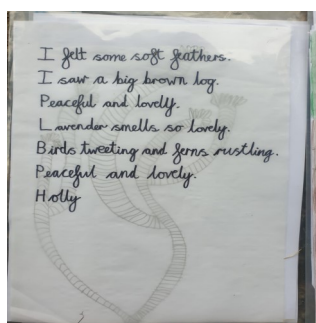 I felt some soft feathers.
I saw a big brown log.
Peaceful and lovely.
Lavender smells so lovely.
Birds tweeting and ferns rustling.
Peaceful and lovely.
Holly